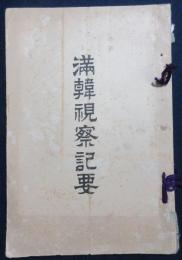 滿韓視察記要